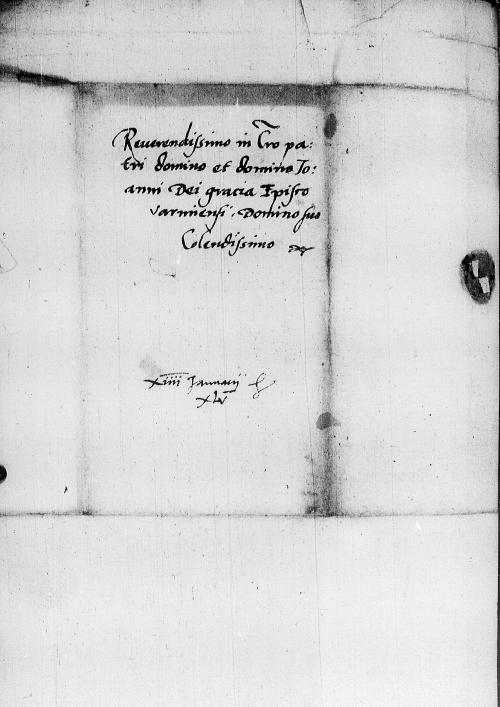 Reverendissimo in Cro pa:
tri domino et domino Io:
anni Dei gracia Episco
varmiensi. Domino suo
Colendissimo
xiiii Januarij
xlv